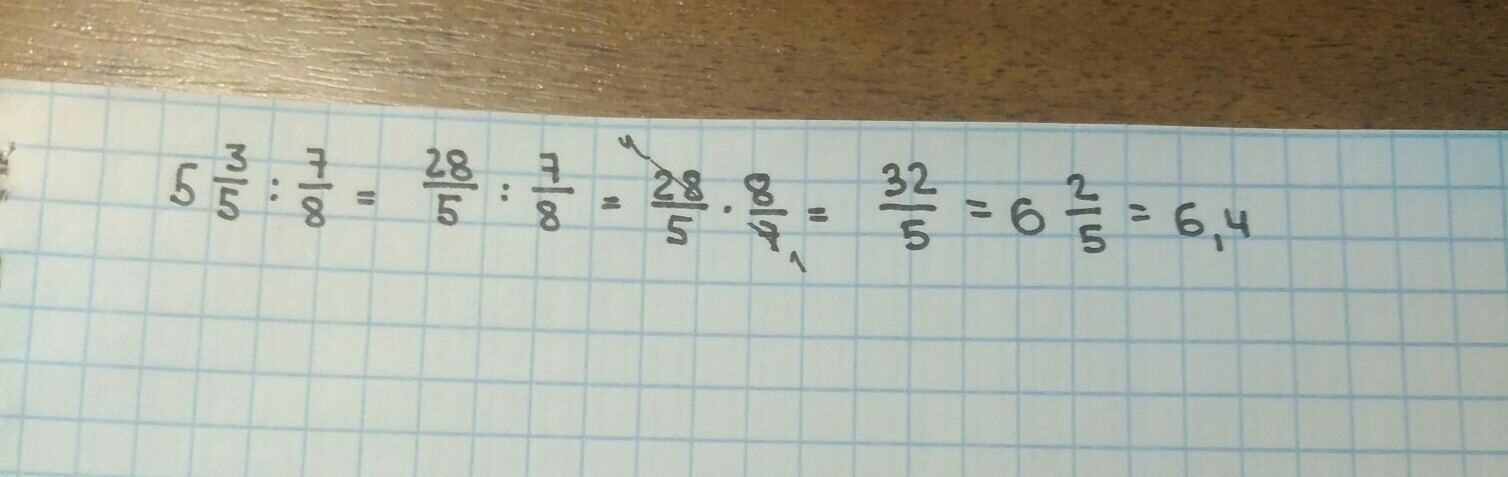 5 3/5 : 7/8 = 28/5 : 7/8 = 4 28/5 · 8/7 1 = 32/5 = 6 2/5 = 6,4